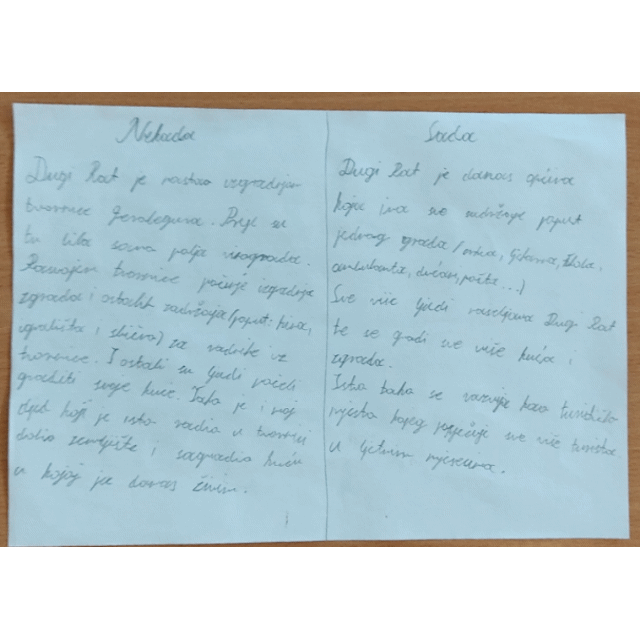 Nekada
Dugi Rat je nastao izgradnjom
tvornice Ferolegura. Prije su
tu bila samo polja vinograda.
Razvojem tvornice počinje izgradnja
zgrada i ostalih sadržaja (poput: kina,
igrališta i slično) za radnike uz
tvornice. I ostali su ljudi počeli
graditi svoje kuće. Tako je i moj
djed koji je isto radio u tvornici
dobio zemljište i sagradio kuću
u kojoj ja danas živim.
Sada
Dugi Rat je danas općina
koja ima sve sadržaje poput
jednog grada (ljekarna, škola,
ambulanta, dućan, pošta...)
Sve više ljudi naseljava Dugi Rat
te se gradi sve više kuća i
zgrada.
Isto tako se razvija kao turističko
mjesto kojeg posjećuje sve više turista
u ljetnim mjesecima.